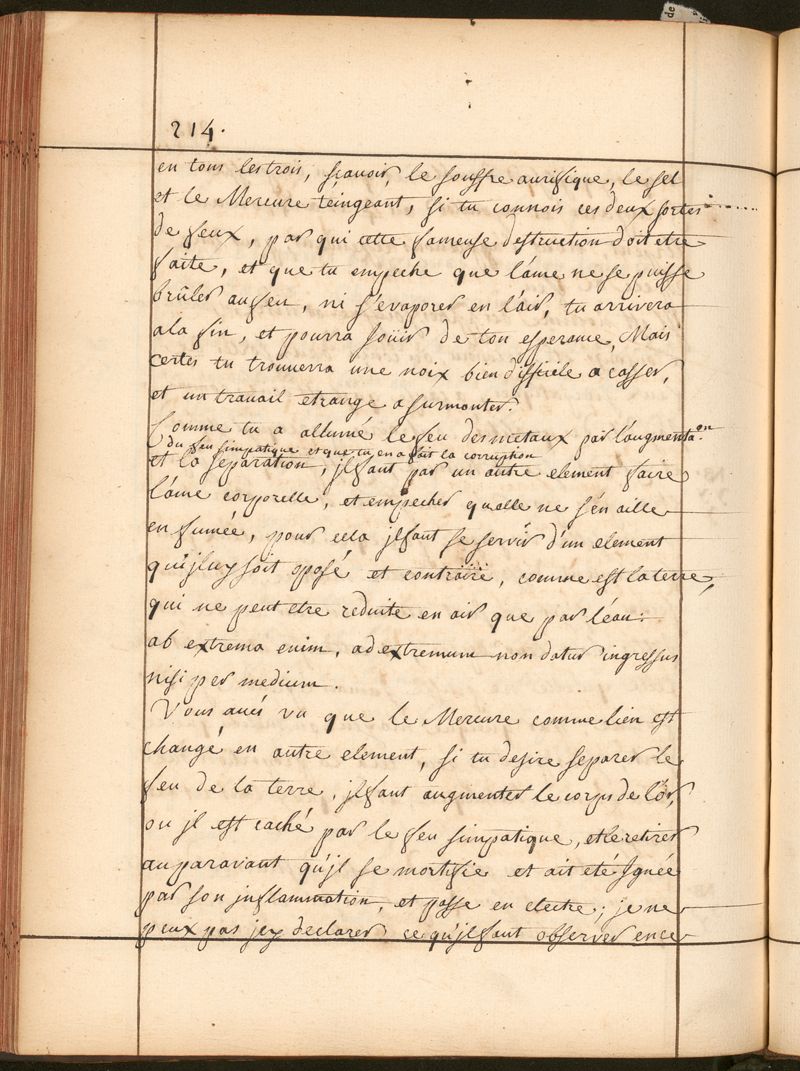 214.
en tous les trois, scavoir, le souffre aurifique, le sel
et le Mercure teingeant, si tu connois ces deux sortes
de feux, par qui cette fameuse destruction doit etre
faite, et que tu empeche que l'ame ne se puisse
brûler au feu, ni s'evaporer en l'air, tu arrivera
a la fin, et pourra joüir de ton esperance, Mais
certes tu trouuera une noix bien difficile a casser,
et un travail etrange a surmonter.
Comme tu a allumé le feu des metaux par l'augmenta.on
du feu simpatique et que tu en a fait la corruption
et la separation, jl faut par un autre element faire
l'ame corporelle, et empecher qu'elle ne s'en aille
en fumée, pour cela jl faut se servir d'un element
qu'jl luy soit oposé et contraire, comme est la terre,
qui ne peut etre reduite en air que par l'eau:
ab extrema enim, ad extremum non datur ingressus
nisi per medium.
Vous aués vu que le Mercure comme lien est
changé en autre element, si tu desire separer le
feu de la terre, jl faut augmenter le corps de l'or,
ou jl est caché par le feu simpatique, et le retirer
auparavant qu'jl se mortifie et ait eté Jgnée
par son jnflammation, et passe en electre; je ne
peux pas jcy declarer ce qu'jl faut observer en ce